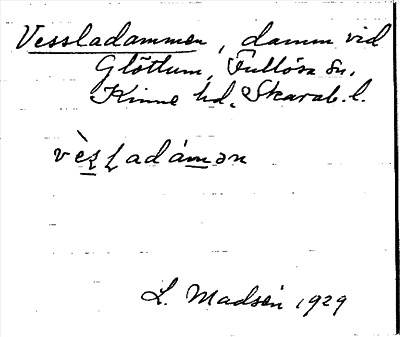 Vessladammen, damm vid
Glöttum, Fullösa sn.
Kinne hd, Skarab. l.
vès̲ʂadám̲ən
L. Madsén 1929